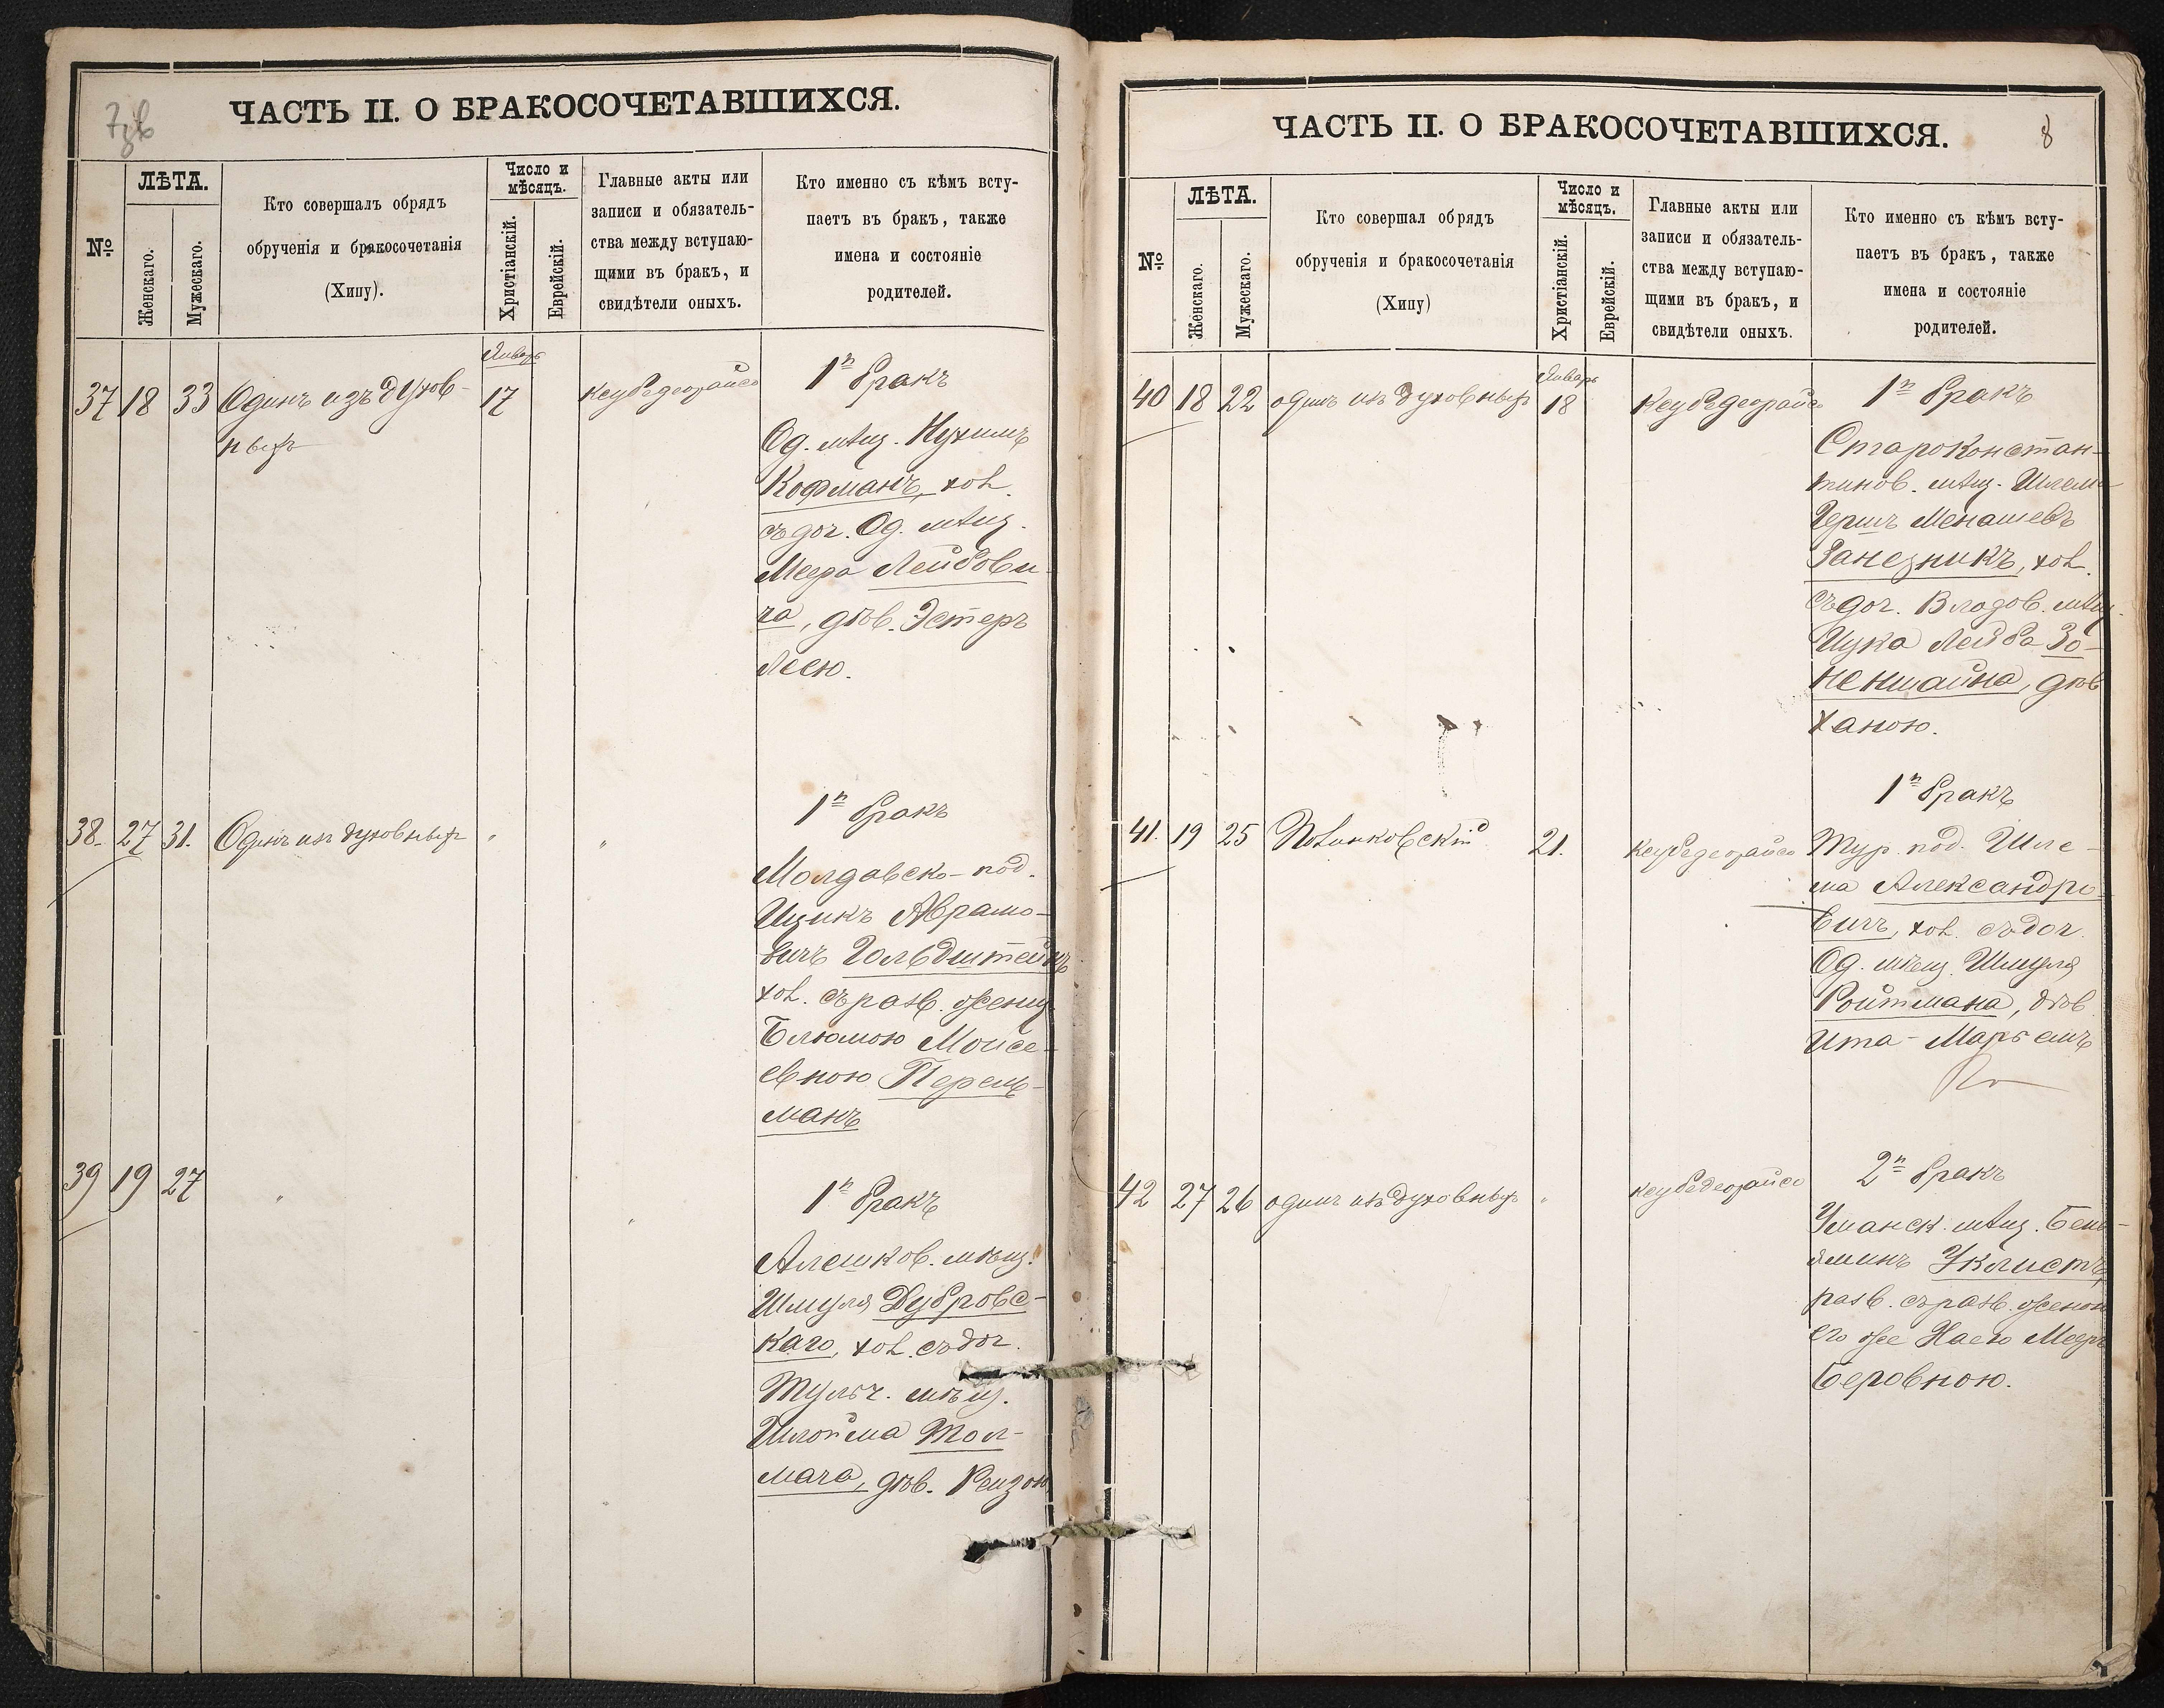 ЧАСТЬ II. О БРАКОСОЧЕТАВШИХСЯ.
№
ЛѢТА.
Женскаго.
Мужескаго.
Кто совершалъ обрядъ
обрученія и бракосочетанія
(Хипу).
Число и
мѣсяцъ.
Христіанскій.
Еврейскій.
Главные акты или
записи и обязатель-
ства между вступаю-
щими въ бракъ, и
свидѣтели оныхъ.
Кто именно съ кѣмъ всту-
паетъ въ бракъ, также
имена и состояніе
родителей.
37 18 33 Одинъ изъ духов-
ныхъ
Январь
17
Кеубедеорайсо
1й бракъ
Од. мѣщ. Нухимъ
Кофманъ, хол.
съ доч. Од. мѣщ.
Меера Лейбови-
ча, дѣв. Эстеръ
Леею.
38. 27 31. Одинъ изъ духовныхъ "
"
1й бракъ
Молдавско-под.
Ицикъ Абрамо-
вичъ Гольдштейнъ
хол. съ разв. женщ.
Блюмою Моисе-
евною Перель-
манъ
39 19 27 "
"
1й бракъ
Алешков. мѣщ.
Шмуля Дубровс-
каго, хол. съ доч.
Тульч. мѣщ.
Шлойма Тол-
мача, дѣв. Рейзою
ЧАСТЬ II. О БРАКОСОЧЕТАВШИХСЯ.
8
№
ЛѢТА.
Женскаго.
Мужескаго.
Кто совершал обрядъ
обрученія и бракосочетанія
(Хипу)
Число и
мѣсяцъ.
Христіанскій.
Еврейскій.
Главные акты или
записи и обязатель-
ства между вступаю-
щими въ бракъ, и
свидѣтели оныхъ.
Кто именно съ кѣмъ всту-
паетъ въ бракъ, также
имена и состояніе
родителей.
40 18 22 одинъ изъ духовныхъ
Январь
18
Кеубедеорайсо
1й бракъ
Староконстан-
тинов. мѣщ. Шлема
Гершъ Менашевъ
хол.
съ доч. Владов. мѣщ.
Лейба Зо-
неншайна, дѣв
Ханою.
41. 19 25 Полинковскій 21.
Кеубедеорайсо
1й бракъ
Тур. под. Шле-
ма Александро-
вичъ, хол. съ доч.
Од. мѣщ. Шмуля
Ройтмана, дѣв
Ита-Марьемъ
42 27 26 одинъ изъ духовныхъ "
кеубедеорайсо
2й бракъ
Уманск. мѣщ. Бень-
яминъ Уклистъ,
разв. съ разв. женою
его же Хаею Меер-
Беровною.